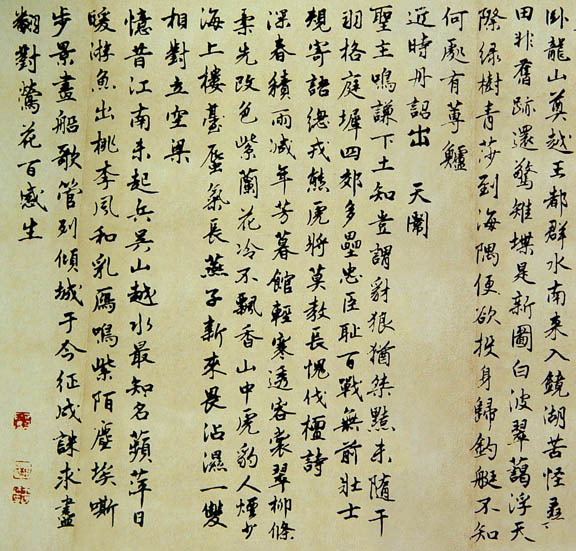 卧龍山奠越王都群水南來入鏡湖苦怪桑
田非舊跡還驚雉堞是新圖白波翠藹浮天
際綠樹青莎到海隅便欲投身歸釣艇不知
何處有蓴鱸
近時丹詔出 天
聖主鳴謙下土知豈謂豺狼猶桀黠未隨干
羽格庭墀四郊多壘忠臣恥百戰無前壯士
規寄語總戎熊虎將莫教長愧伐檀詩
深春積雨減年芳暮館輕寒透客裳翠柳條
柔先改色紫蘭花冷不飄香山中虎豹人煙少
海上樓臺蜃氣長燕子新來畏沾濕一雙
相對立空梁
憶昔江南未起兵吳山越水最知名蘋苹日
暖游魚出桃李風和乳鴈鳴紫陌塵埃嘶
步景畫船歌管列傾城于今征戍誅求盡
翻對鶯花百感生